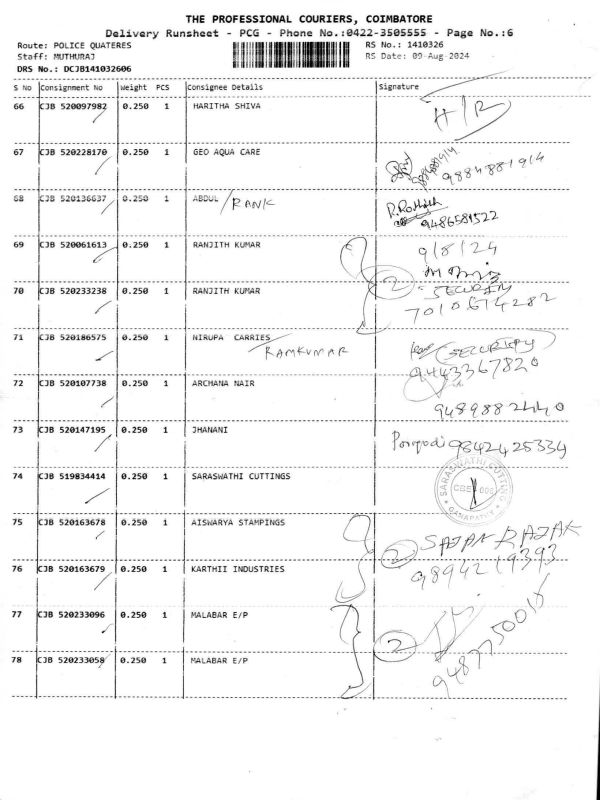 THE PROFESSIONAL COURIERS, COIMBATORE
Delivery Runsheet - PCG - Phone No.:0422-3505555 - Page No.:6
Route: POLICE QUATERES RS No.: 1410326
Staff: MUTHURAJ RS Date: 09-Aug-2024
DRS No.: DCJB141032606
S No Consignment No Weight PCS Consignee Details Signature
66 CJB 520097982 0.250 1 HARITHA SHIVA
67 CJB 520228170 0.250 1 GEO AQUA CARE 9884881914
68 CJB 520136637 0.250 1 ABDUL / RANK
9486581522
69 CJB 520061613 0.250 1 RANJITH KUMAR 9/8/24
2
SECURITY
70 CJB 520233238 0.250 1 RANJITH KUMAR 7010674282
71 CJB 520186575 0.250 1 NIRUPA CARRIES SECURITY
RAMKUMAR
9443367820
72 CJB 520107738 0.250 1 ARCHANA NAIR
9489882440
73 CJB 520147195 0.250 1 JHANANI 9842425334
74 CJB 519834414 0.250 1 SARASWATHI CUTTINGS
SARASWATHI CUTTING
CBE
GANAPATHY
75 CJB 520163678 0.250 1 AISWARYA STAMPINGS
2
76 CJB 520163679 0.250 1 KARTHII INDUSTRIES 9894219393
77 CJB 520233096 0.250 1 MALABAR E/P
2
78 CJB 520233058 0.250 1 MALABAR E/P